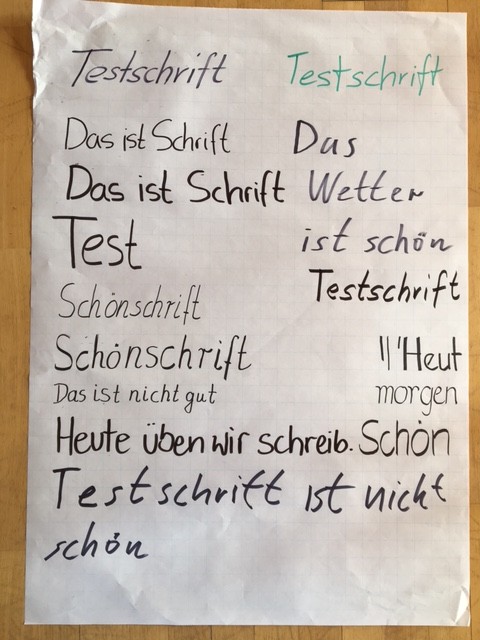 Testschrift
Testschrift
Das ist Schrift
Das
Das ist Schrift
Wetter
Test
ist schön
Testschrift
Schönschrift
Schönschrift
||'Heut
Das ist nicht gut
morgen
Heute üben wir schreib. Schön
Testschrift ist nicht
schön